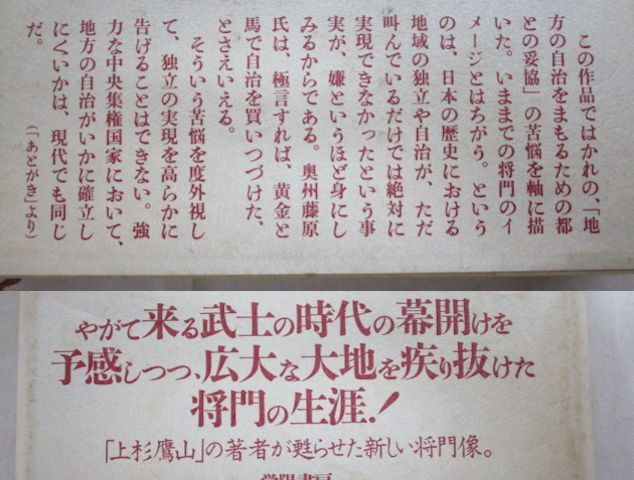 この作品ではかれの、「地
方の自治をまもるための都
との妥協」の苦悩を軸に描
いた。いままでの将門のイ
メージとはちがう。という
のは、日本の歴史における
地域の独立や自治が、ただ
叫んでいるだけでは絶対に
実現できなかったという事
実が、嫌というほど身にし
みるからである。奥州藤原
氏は、極言すれば、黄金と
馬で自治を買いつづけた、
とさえいえる。
そういう苦悩を度外視し
て、独立の実現を高らかに
告げることはできない。強
力な中央集権国家において、
地方の自治がいかに確立し
にくいかは、現代でも同じ
だ。
（「あとがき」より）
やがて来る武士の時代の幕開けを
予感しつつ、広大な大地を疾り抜けた
将門の生涯！
「上杉鷹山」の著者が甦らせた新しい将門像。
学陽書房